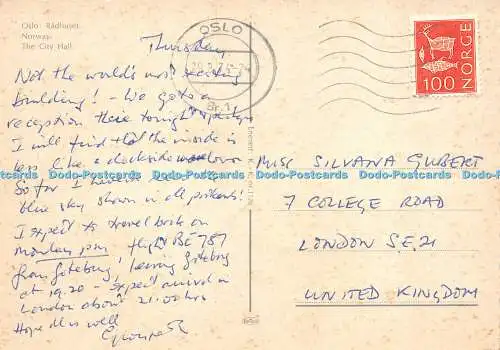 Oslo: Rådhuset.
Norway:
The City Hall.
OSLO
Br.1
NORGE
100
Thursday
Not the world's most exciting
building! - We go to a
reception there tonight & perhaps
I will find that the inside is
less like a dockside
So far I haven't
blue sky shown in all postcards!
I expect to travel back on
Monday pm, flight BE 787
from Göteborg, leaving Göteborg
at 19.20 - expect arrival in
London about 21.00 hrs
Hope all is well
MISS SILVANA GUBERT
7 COLLEGE ROAD
LONDON S.E.21
UNITED KINGDOM
Dodo-Postcards Dodo-Postcards Dodo-Postcards Dodo-Postcards Dodo-Postcards